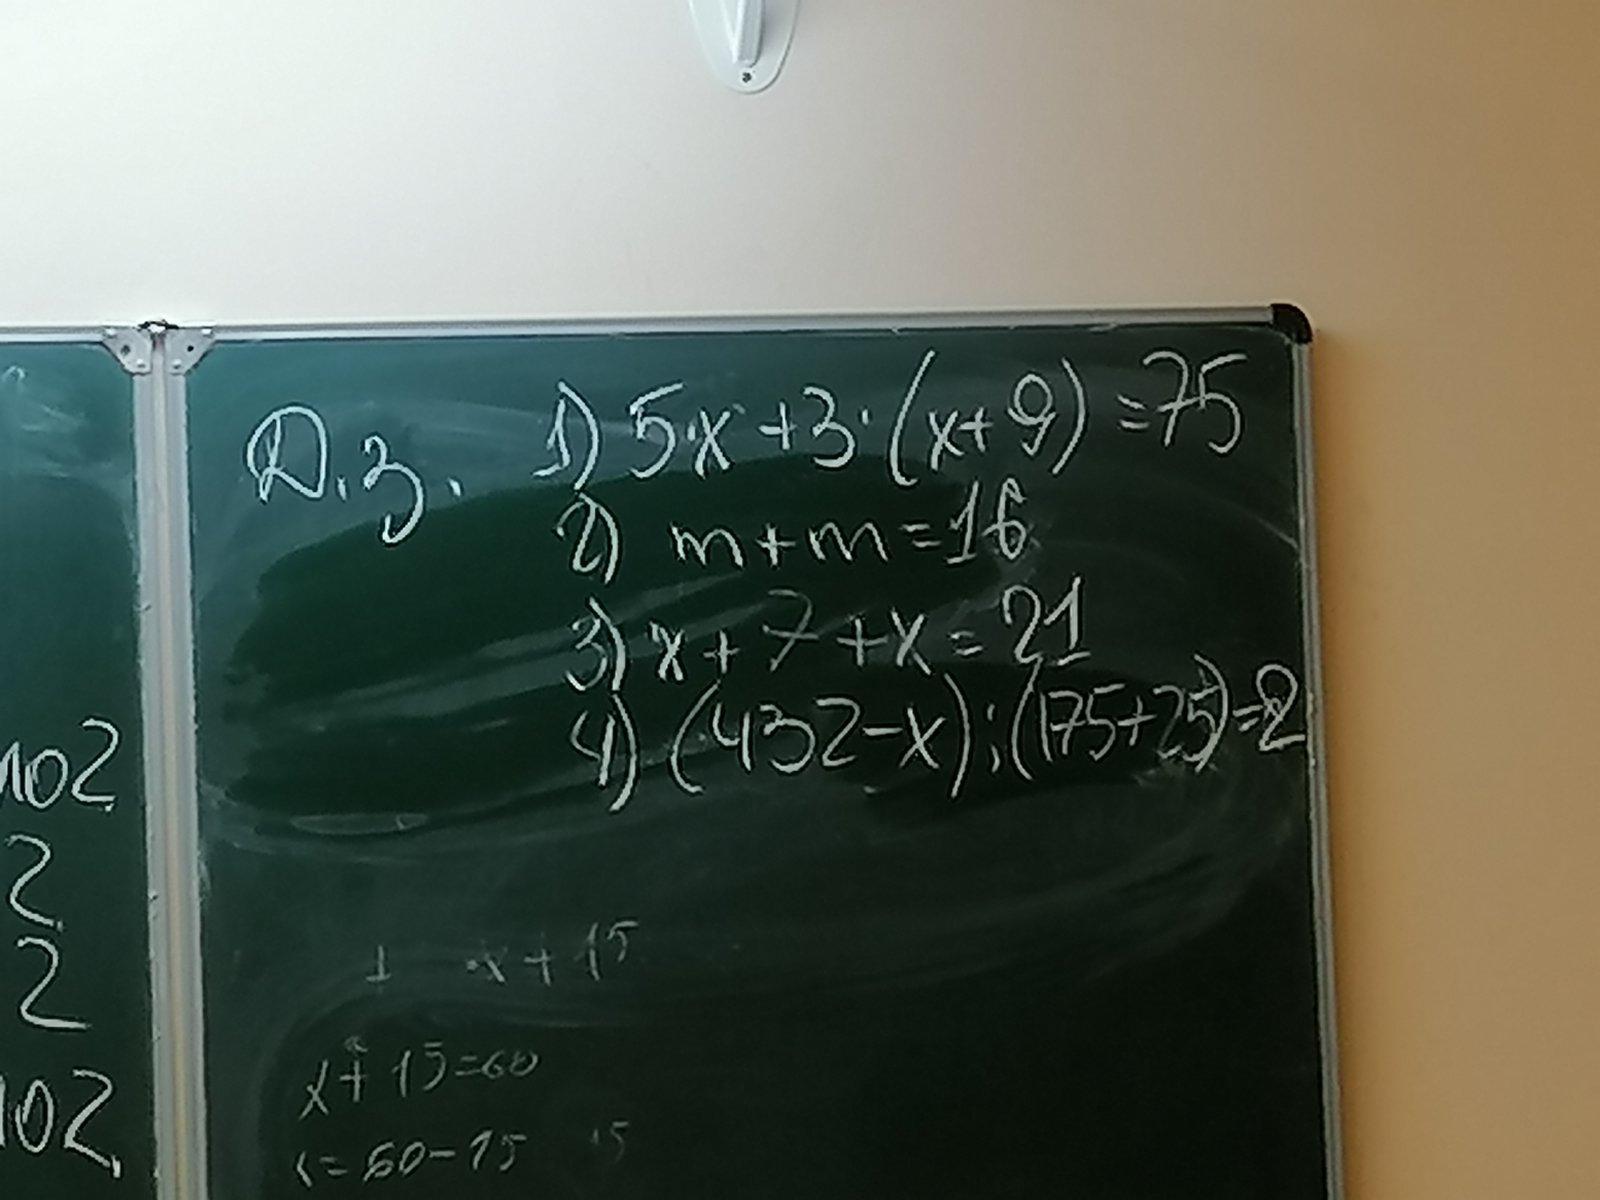 102
2
2
102
Д.з. 1) 5·x+3·(x+9)=75
2) m+m=16
3) x+7+x=21
4) (432-x):(175+25)=2
x+15
x+15=60
=60-15